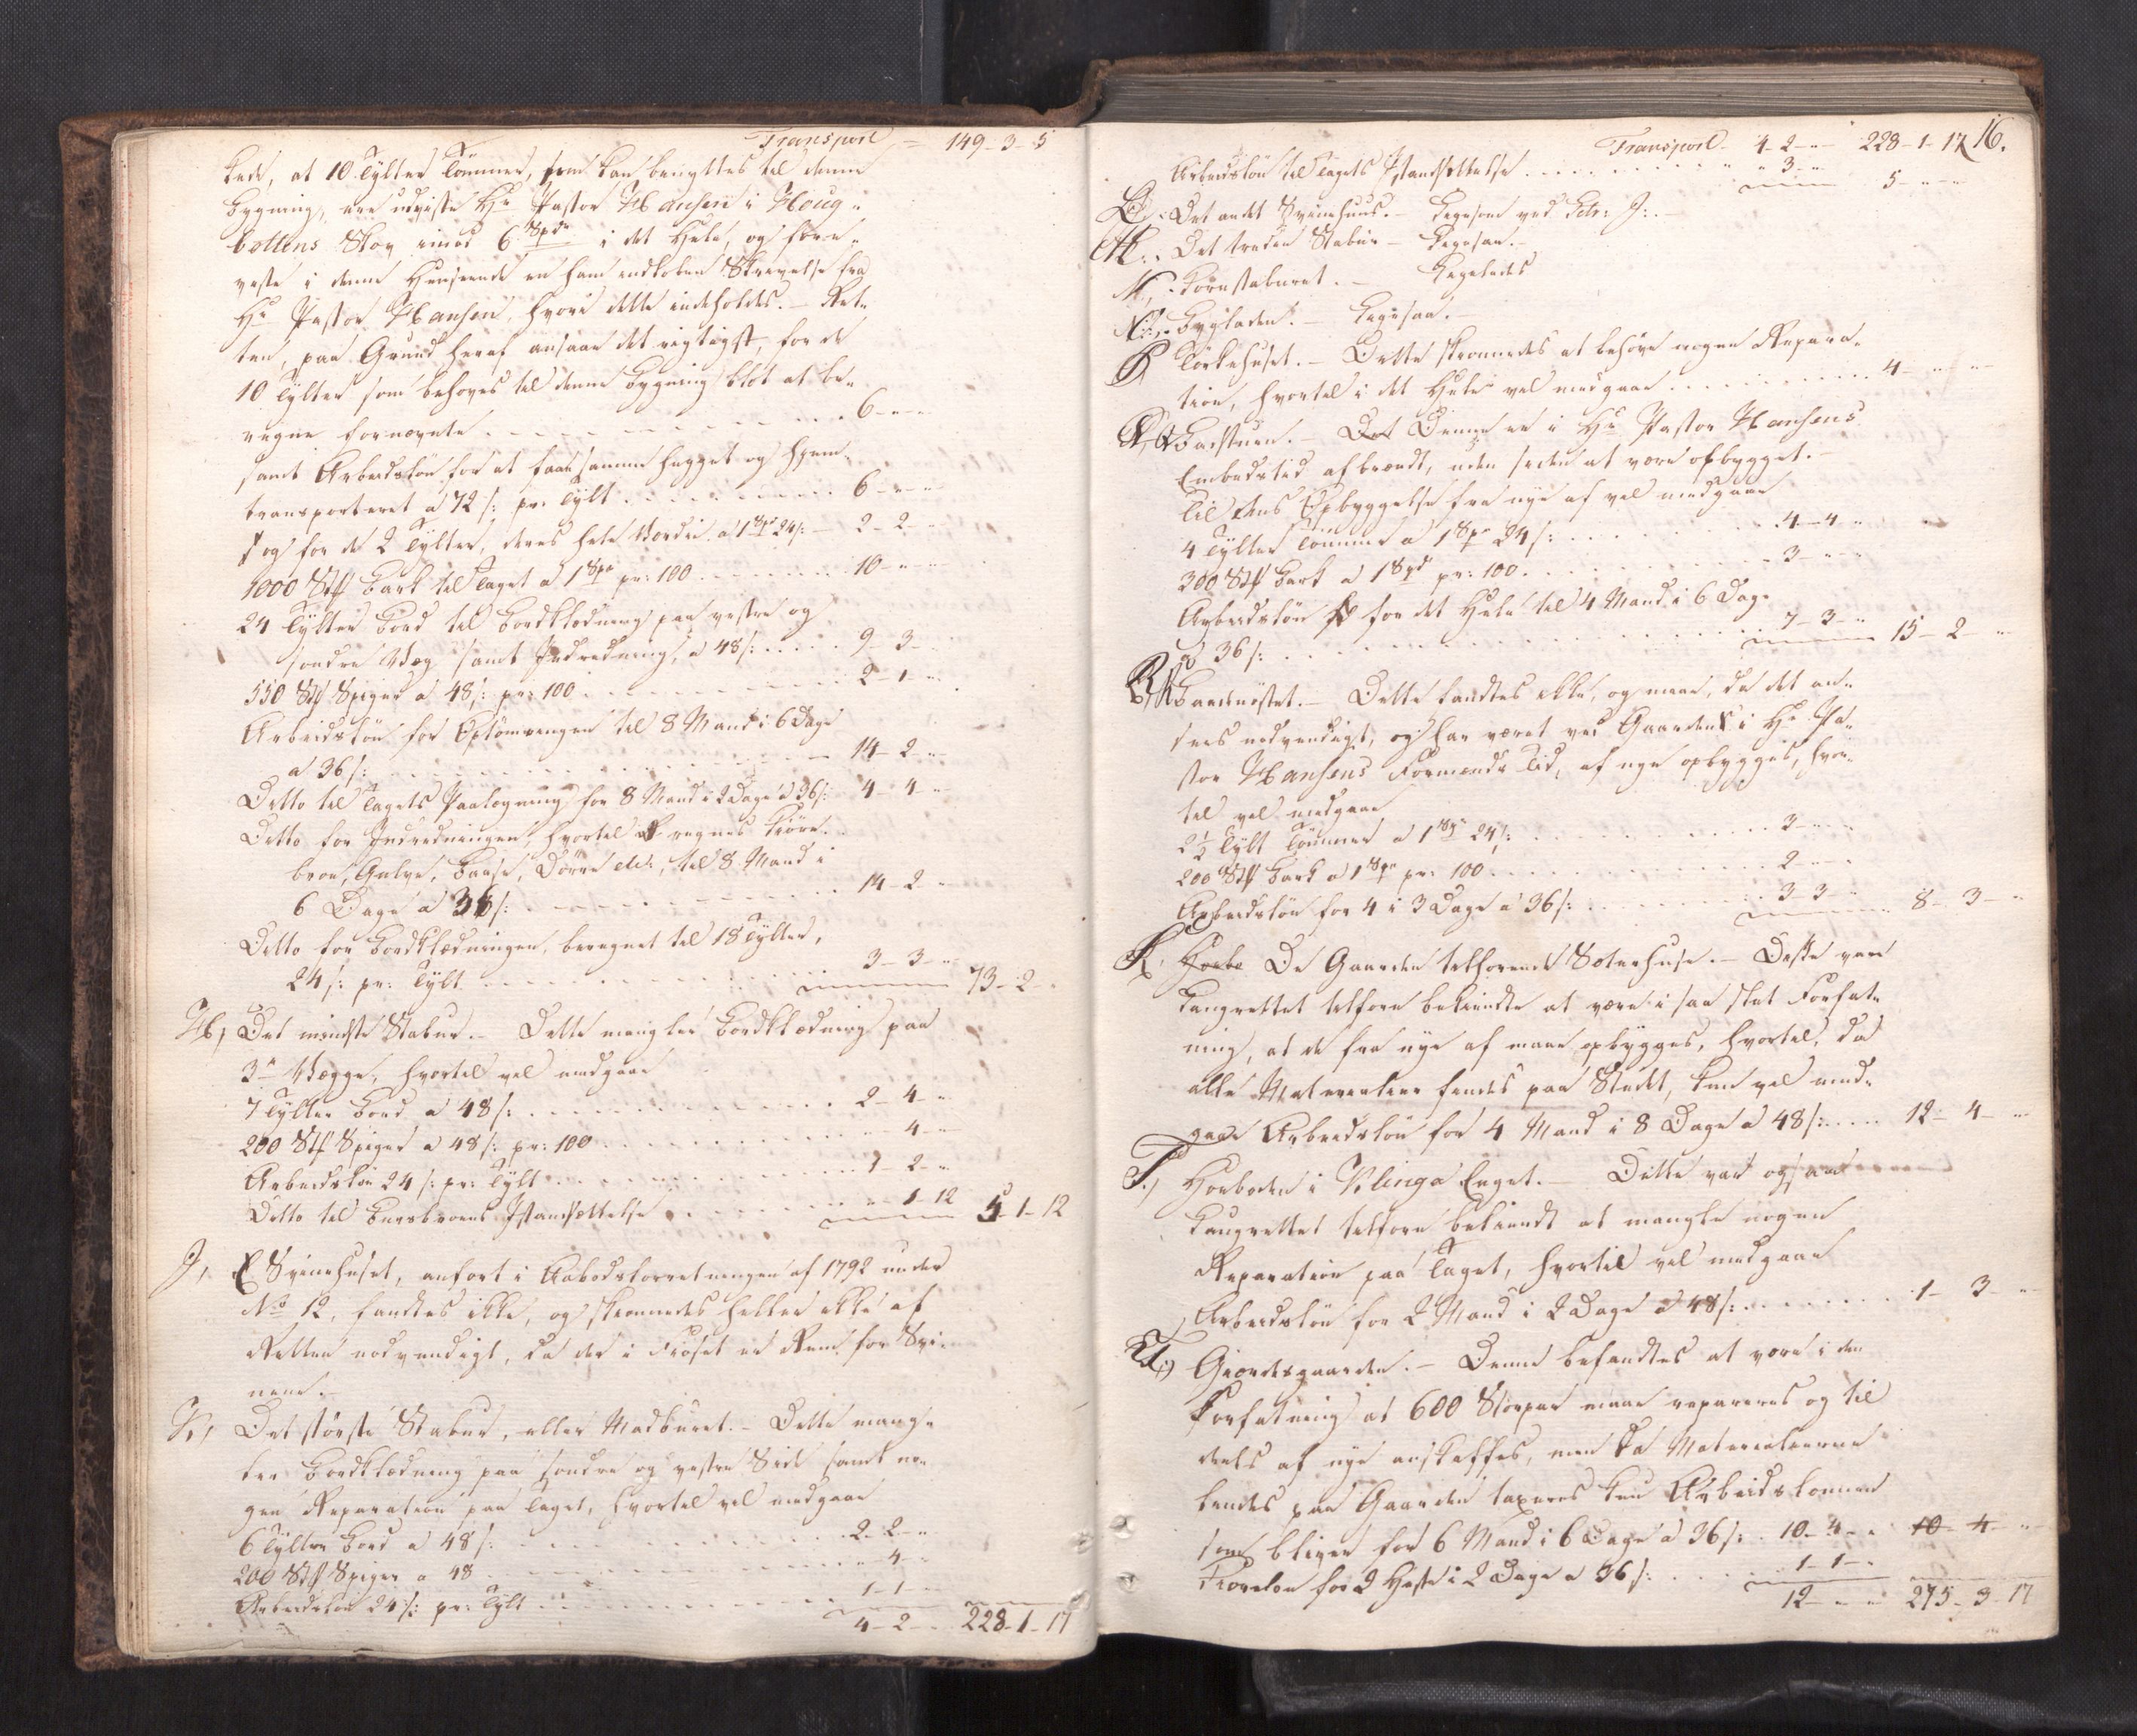 Transport = 149-3-5
kede, at 10 Tylter Tømmer, som kan benyttes til denne
Bygning, ere udviste Hr Pastor Hansen i Houg-
bottens Skov imod 6 Spdr i det Hele, og fore-
viste i denne Henseende en ham indkoben Skrivelse fra
Hr Pastor Hansen, hvori dette indeholdes. - Ret-
ten, paa Grund heraf ansaae det rigtigst, for de
10 Tylter som behoves til denne Bygning blot at be-
regne fornævnte . . . . 6 - " - "
samt Arbeidsløn for at faae samme hugget og hjem-
transporteret a 72 s: pr: Tylt . . . . 6 - " - "
og for de 2 Tylter, deres hele Værdie a 1 Spd 24 s: - 2 - 2 - "
1000 Stk Bark til Taget a 1 Spd pr: 100 . . . . 10 - " - "
24 Tylter Bord til Bordklædning paa vestre og
søndre Væg samt Indredning, a 48 s: . . . . 9 - 3 - "
550 Stk Spiger a 48 s: pr: 100 . . . . 2 - 1 - "
Arbeidsløn for Optømringen til 8 Mand i 6 Dage
a 36 s: . . . . 14 - 2 - "
Ditto til Tagets Paalægning for 8 Mand i 2 Dage a 36 s: 4 - 4 - "
Ditto for Indredningen, hvortil regnes Kiøre-
broe, Gulve, Baase, Dørre etc:, til 8 Mand i
6 Dage a 36 s: . . . . 14 - 2 - "
Ditto for Bordklædningen, beregnet til 18 Tylter,
24 s: pr: Tylt . . . . 3 - 3 - " 73 - 2 - "
H, Det mindste Stabur. - Dette mangler Bordklædning paa
3de Vægge, hvortil vil medgaae
7 Tylter Bord a 48 s: . . . . 2 - 4 - "
200 Stk Spiger a 48 s: pr: 100 . . . . " - 4 - "
Arbeidsløn 24 s: pr: Tylt . . . . 1 - 2 - "
Ditto til Buersbroens Istandsættelse . . . . " - 1 - 12 5 - 1 - 12
J, Svinehuset, anført i Aabodsforretningen af 1792 under
No 12, fandtes ikke, og skiønnedes heller ikke af
Retten nødvendigt, da der i Fiøset er Rum for Svi-
nene. -
K, Det største Stabur, eller Madburet. - Dette mang-
ler Bordklædning paa søndre og vestre Side samt no-
gen Reparation paa Taget, hvortil vil medgaae
6 Tylter Bord a 48 s: . . . . 2 - 2 - "
200 Stk Spiger a 48 . . . . " - 4 - "
Arbeidsløn 24 s: pr: Tylt . . . . 1 - 1 - "
4 - 2 - " 228 - 1 - 17
16.
Transport - 4 - 2 - " - 228 - 1 - 17
Arbeidsløn til Tagets Istandsættelse . . . . " - 3 - " 5 - " - "
L, Det andet Svinehuus. - Ligesom ved Litr: J:. -
M, Det tredie Stabur - Ligesaa. -
Kornstaburet. - Ligeledes
Bygladen. - Ligesaa. -
P, Tørkehuset. - Dette skiønnedes at behøve nogen Repara-
tion, hvortil i det Hele vil medgaae . . . . 4 - " - "
Badstuen. - Det Denne er i Hr Pastor Hansens
Embedstid afbrændt, uden siden at være opbygget. -
Til dens Opbyggelse fra nye af vil medgaae
4 Tylter Tømmer a 1 Spd 24 s: . . . . 4 - 4 - "
300 Stk Bark a 1 Spd pr: 100 . . . . 3 - " - "
Arbeidsløn for det Hele til 4 Mand i 6 Dage
a 36 s: . . . . 7 - 3 - " 15 - 2 - "
Baadnøstet. - Dette fandtes ikke, og maae, da det an-
sees nødvendigt, og har været ved Gaarden i Hr Pa-
stor Hansens Formands Tid, af nye opbygges, hvor-
til vil medgaae
2 1/2 Tylt Tømmer a 1 Spd 24 s: . . . . 3 - " - "
200 Stk Bark a 1 Spd pr: 100 . . . . 2 - " - "
Arbeidsløn for 4 i 3 Dage a 36 s: . . . . 3 - 3 - " 8 - 3 - "
De Gaarden tilhørende Sæterhuse. - Disse vare
Laugrettet tilforn bekiendte at være i saa slet Forfat-
ning, at de fra nye af maae opbygges, hvortil, da
alle Materialier findes paa Stedet, kun vil med-
gaae Arbeidsløn for 4 Mand i 8 Dage a 48 s: . . . . 12 - 4 - "
T, Høeboden i Klinga Enget. - Dette var ogsaa
Laugrettet tilforn bekiendt at mangle nogen
Reparation paa Taget, hvortil vil medgaae
Arbeidsløn for 2 Mand i 2 Dage a 48 s: . . . . 1 - 3 - "
U, Giærdesgaarden. - Denne befandtes at være i den
Forfatning at 600 Storpar maae repareres og til
deels af nye anskaffes, men da Materialierne
haves paa Gaarden taxeres kun Arbeidslønnen
som bliver for 6 Mand i 6 Dage a 36 s: . 10 - 4 - " 10 - 4 - "
Kiøreløn for 2 Heste i 2 Dage a 36 s: . . . . 1 - 1 - "
12 - " - " 275 - 3 - 17